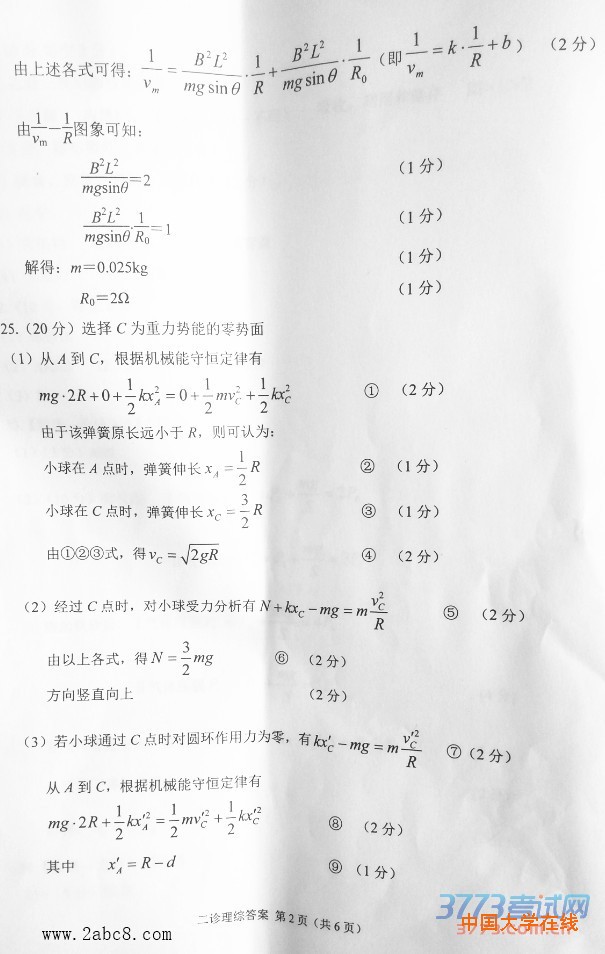 由上述各式可得：1/v_m = B²L²/(mg sin θ) · 1/R + B²L²/(mg sin θ) · 1/R₀（即 1/v_m = k · 1/R + b）（2 分）
由 1/v_m — 1/R 图象可知：
B²L²/(mgsinθ)=2 （1 分）
B²L²/(mgsinθ) · 1/R₀=1 （1 分）
解得：m=0.025kg （1 分）
R₀=2Ω （1 分）
25.（20 分）选择 C 为重力势能的零势面
（1）从 A 到 C，根据机械能守恒定律有
mg·2R+0+1/2 kx_A² = 0+1/2 mv_C² + 1/2 kx_C² ① （2 分）
由于该弹簧原长远小于 R，则可认为：
小球在 A 点时，弹簧伸长 x_A = 1/2 R ② （1 分）
小球在 C 点时，弹簧伸长 x_C = 3/2 R ③ （1 分）
由①②③式，得 v_C = √(2gR) ④ （2 分）
（2）经过 C 点时，对小球受力分析有 N + kx_C − mg = m v_C²/R ⑤ （2 分）
由以上各式，得 N = 3/2 mg ⑥ （2 分）
方向竖直向上 （2 分）
（3）若小球通过 C 点时对圆环作用力为零，有 kx′_C − mg = m v′_C²/R ⑦（2 分）
从 A 到 C，根据机械能守恒定律有
mg·2R + 1/2 kx′_A² = 1/2 mv′_C² + 1/2 kx′_C² ⑧ （2 分）
其中 x′_A = R−d ⑨ （1 分）
二诊理综答案 第 2 页（共 6 页）
3773考试网
中国大学在线
www.2abc8.com